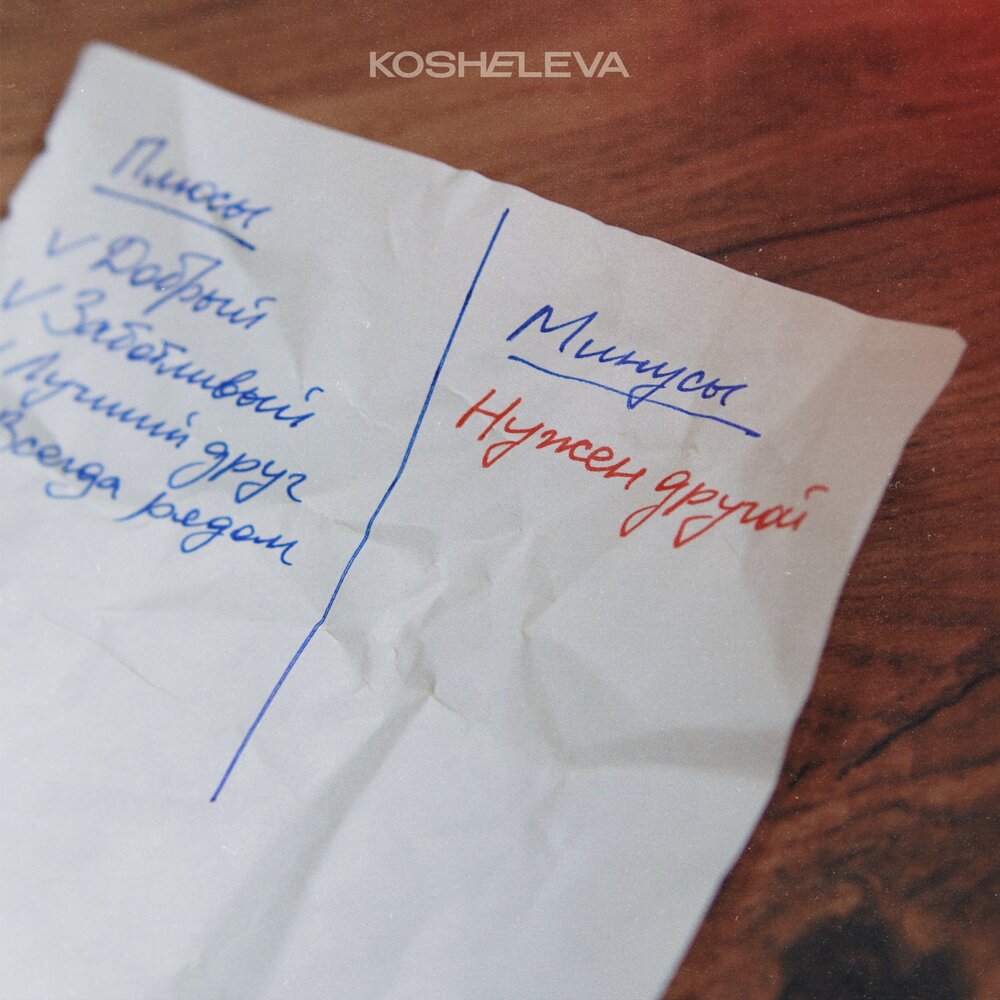 KOSHELEVA
Плюсы
✓ Добрый
✓ Заботливый
✓ Лучший друг
Всегда рядом
Минусы
Нужен другой